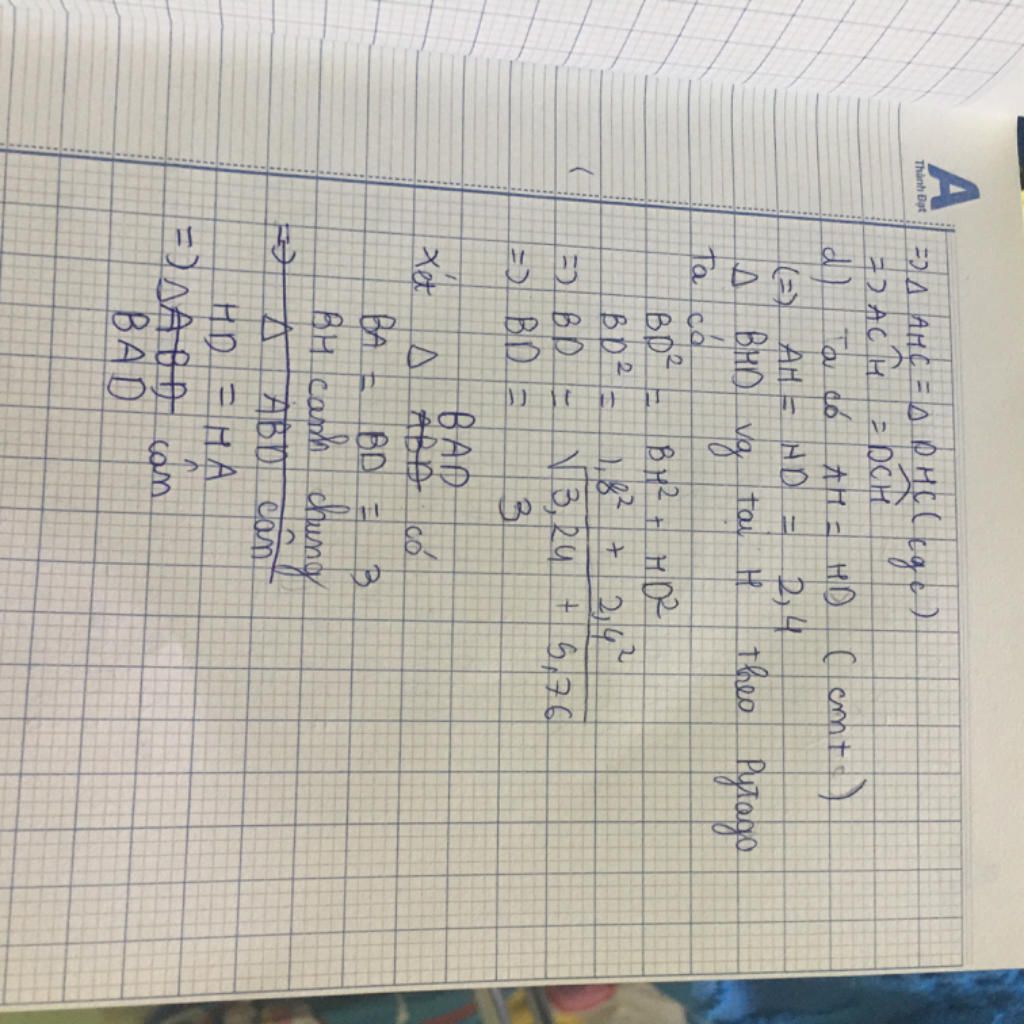 A
Thành Đạt
=> Δ AHC = Δ DHC (cgc)
=> AĈH = DĈH
d) Ta có AH = HD (cmtc)
(=) AH = HD = 2,4
Δ BHD vg tại H theo Pytago
Ta có
BD² = BH² + HD²
BD² = 1,8² + 2,4²
=> BD = √3,24 + 5,76
=> BD = 3
BAD
Xét Δ ABD có
BA = BD = 3
BH cạnh chung
=> Δ ABD cân
HD = HA
=> Δ ABD cân
BAD